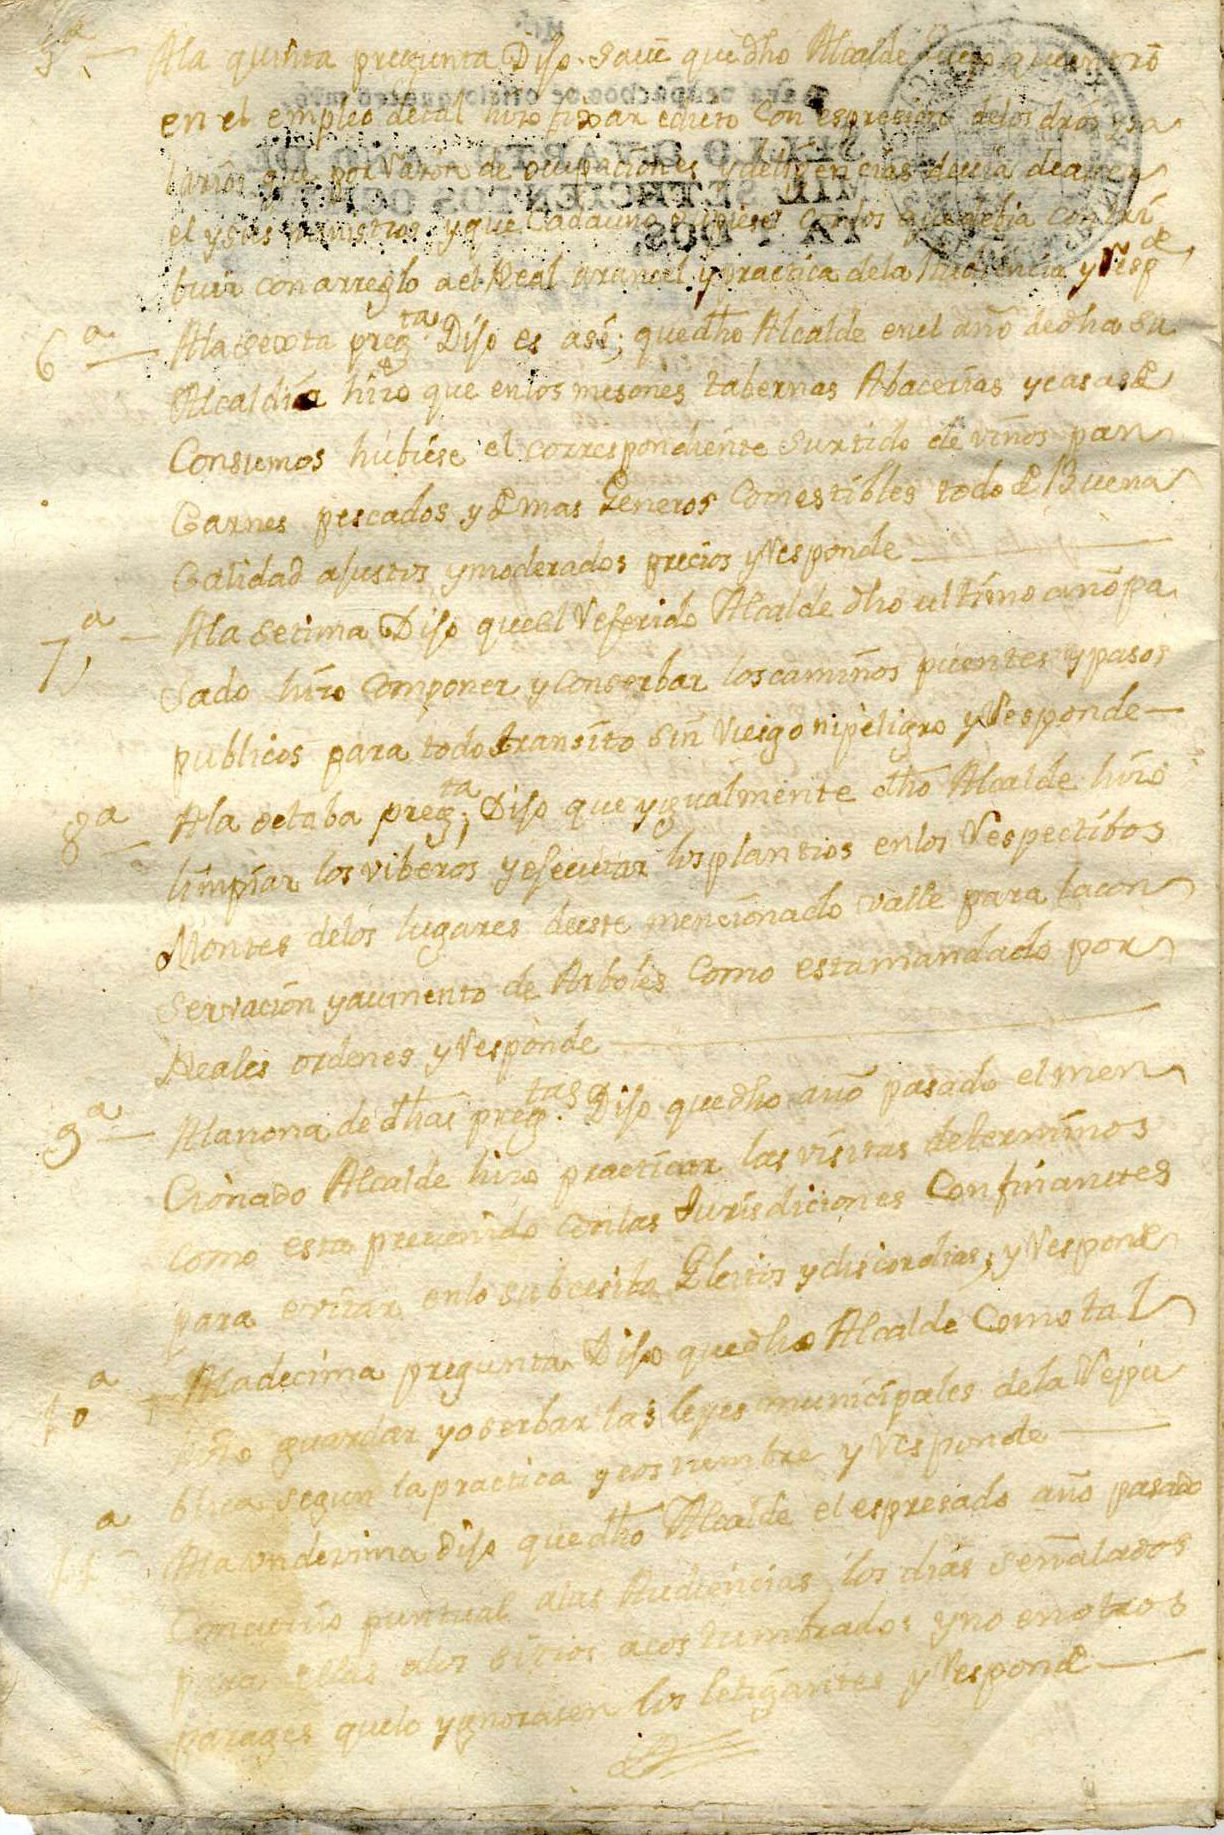 5ª Ala quinta pregunta Dijo save que dho Alcalde luego que entró
en el empleo de tal hizo fixar edicto con espresion delos dros y sa
larios que por razon de ocupaciones y diligencias devia de aver
el y sus ministros y que cada uno supiese los que debia contri
buir con arreglo a el Real aranzel y practica dela Audiencia y Respde
6ª Ala sexta pregta Dijo es asi; que dho Alcalde en el año de dha su
Alcaldia hizo que enlos mesones tabernas Abacerias y casas de
Consumos hubiese el correspondiente surtido de vinos pan
Carnes pescados y demas Generos Comestibles todo de Buena
Calidad ajustes y moderados precios y Responde
7ª Ala setima Dijo que el Referido Alcalde dho ultimo año pa
sado hizo componer y conserbar los caminos puentes y pasos
publicos para todo transito sin Riesgo ni peligro y Responde
8ª Ala octaba pregta; Dijo que ygualmente dho Alcalde hizo
limpiar los viberos y ejecutar los plantios enlos Respectibos
Montes delos lugares deeste mencionado valle para la con
servacion y aumento de Arboles como esta mandado por
Reales ordenes y Responde
9ª Ala nona de dhas pregtas Dijo que dho año pasado el men
cionado Alcalde hizo practicar las visitas de terminos
como esta prevenido con las Jurisdiciones Confinantes
para evitar enlo subcesibo Pleitos y discordias; y Responde
10ª Ala decima pregunta Dijo que dho Alcalde Como tal
hizo guardar y oserbar las leyes municipales dela Repu
blica segun la practica y costumbre y Responde
11ª Ala undezima Dijo que dho Alcalde el espresado año pasado
Concurrio puntual alas Audiencias los dias señalados
para ellas alos sitios acostumbrados y no en otros
parages que lo ygnorasen los letigantes y Responde